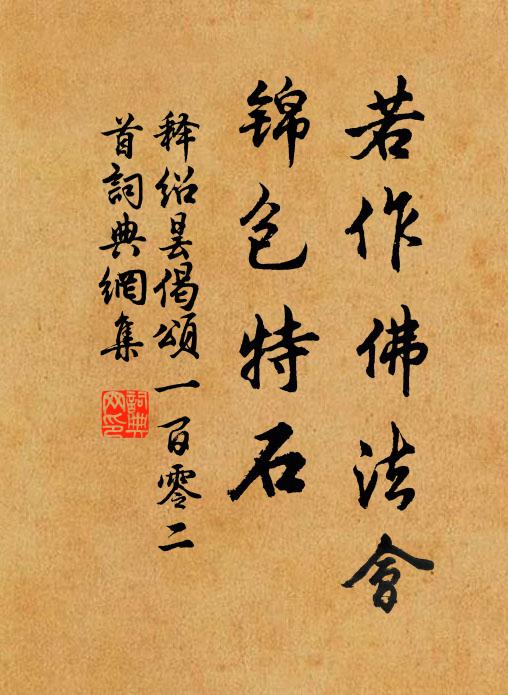 若作佛法會
錦包特石
釋紹曇偈頌一百零二
首詞典網集
詞典
网印